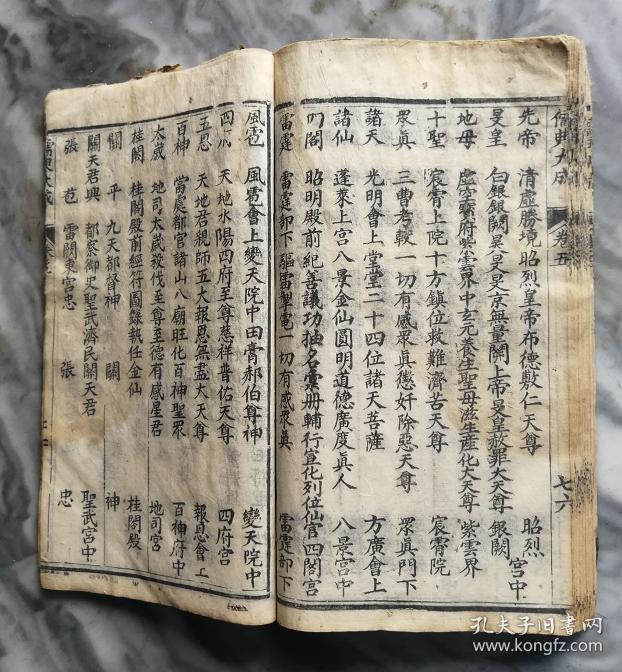 儒典大成 卷五 七六
先帝 清虛勝境昭烈皇帝布德敷仁天尊 昭烈宮中
旻皇 白銀銀闕昊天旻京無量闕上帝旻皇赦罪大天尊 銀闕
地母 虛空寶府紫雲界中玄元養生聖母滋生產化大天尊 紫雲界
十聖 宸霄上院十方鎮位救難濟苦天尊 宸霄院
眾真 三曹考較一切有感眾真懲奸除惡天尊 眾真門下
諸天 光明會上堂堂二十四位諸天菩薩 方廣會上
諸仙 蓬萊上宮八景金仙圓明道德廣度真人 八景宮中
四閣 昭明殿前紀善議功抽名 冊輔行宣化列位仙官 四閣宮
雷霆 雷霆部下驅雷掣電一切有感眾真 雷霆部下
風雹 風雹會上變天院中田膏郝伯尊神 變天院中
四府 天地水陽四府至尊慈祥普佑天尊 四府宮
五恩 天地君親師五大報恩無盡大天尊 報恩會上
百神 當處都官諸山八廟旺化百神聖眾 百神府中
太歲 地司太歲殺伐至尊至德有感星君 地司宮
桂閣 桂閣殿前經符圖籙執任金仙 桂閣殿
關平 九天都督神關 神
關天君興 都察御史聖武濟民關天君 聖武宮中
張苞 雷閣東宮忠張 忠